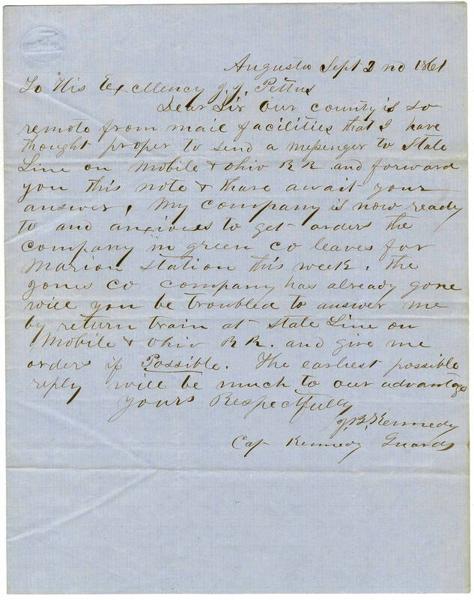 Augusta Sept 2nd 1861
To His Excellency J. J. Pettus
Dear Sir Our county is so
remote from mail facilities that I have
thought proper to send a messenger to State
Line on Mobile & Ohio R R and forward
you this note & there await your
answer, My company is now ready
to and anxious to get orders the
company in green co leaves for
Marion Station this week. The
Jones Co company has already gone
will you be troubled to answer me
by return train at State Line on
Mobile & Ohio R R. and give me
order if Possible. The earliest possible
reply will be much to our advantage
Yours Respectfully
J. B. Kennedy
Capt Kennedy Guards